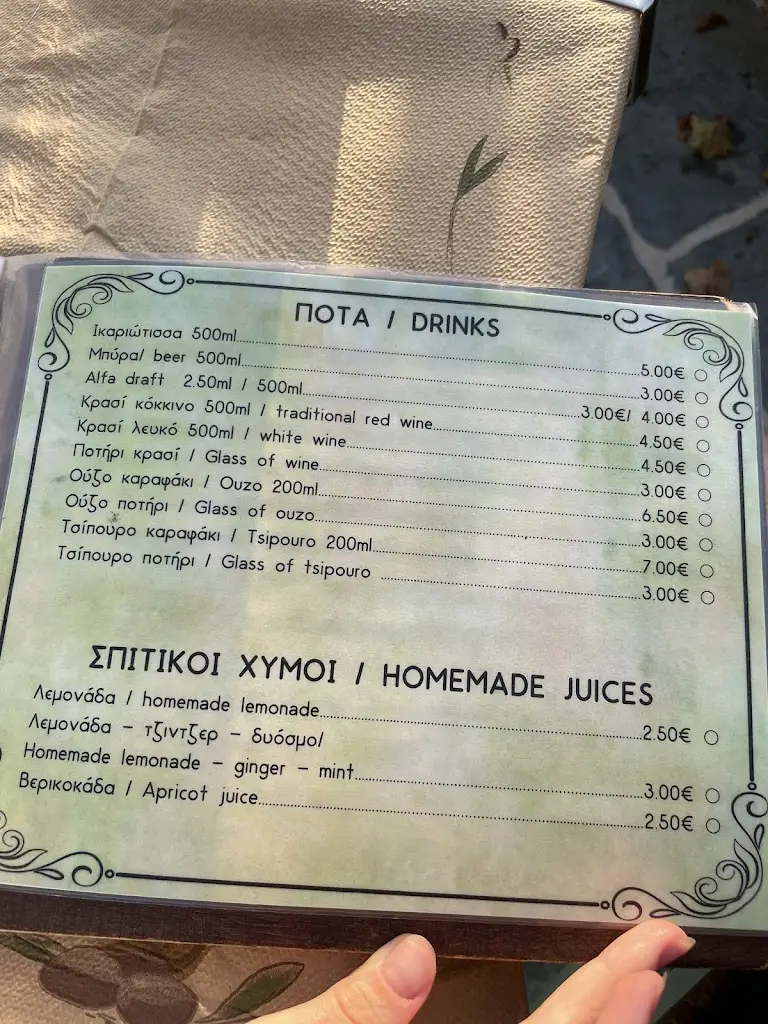 ΠΟΤΑ / DRINKS
Ικαριώτισσα 500ml........5.00€
Μπύρα/ beer 500ml........3.00€
Alfa draft 2.50ml / 500ml........3.00€/ 4.00€
Κρασί κόκκινο 500ml / traditional red wine........4.50€
Κρασί λευκό 500ml / white wine........4.50€
Ποτήρι κρασί / Glass of wine........3.00€
Ούζο καραφάκι / Ouzo 200ml........6.50€
Ούζο ποτήρι / Glass of ouzo........3.00€
Τσίπουρο καραφάκι / Tsipouro 200ml........7.00€
Τσίπουρο ποτήρι / Glass of tsipouro ........3.00€
ΣΠΙΤΙΚΟΙ ΧΥΜΟΙ / HOMEMADE JUICES
Λεμονάδα / homemade lemonade........2.50€
Λεμονάδα – τζιντζερ – δυόσμο/
Homemade lemonade – ginger – mint........3.00€
Βερικοκάδα / Apricot juice........2.50€